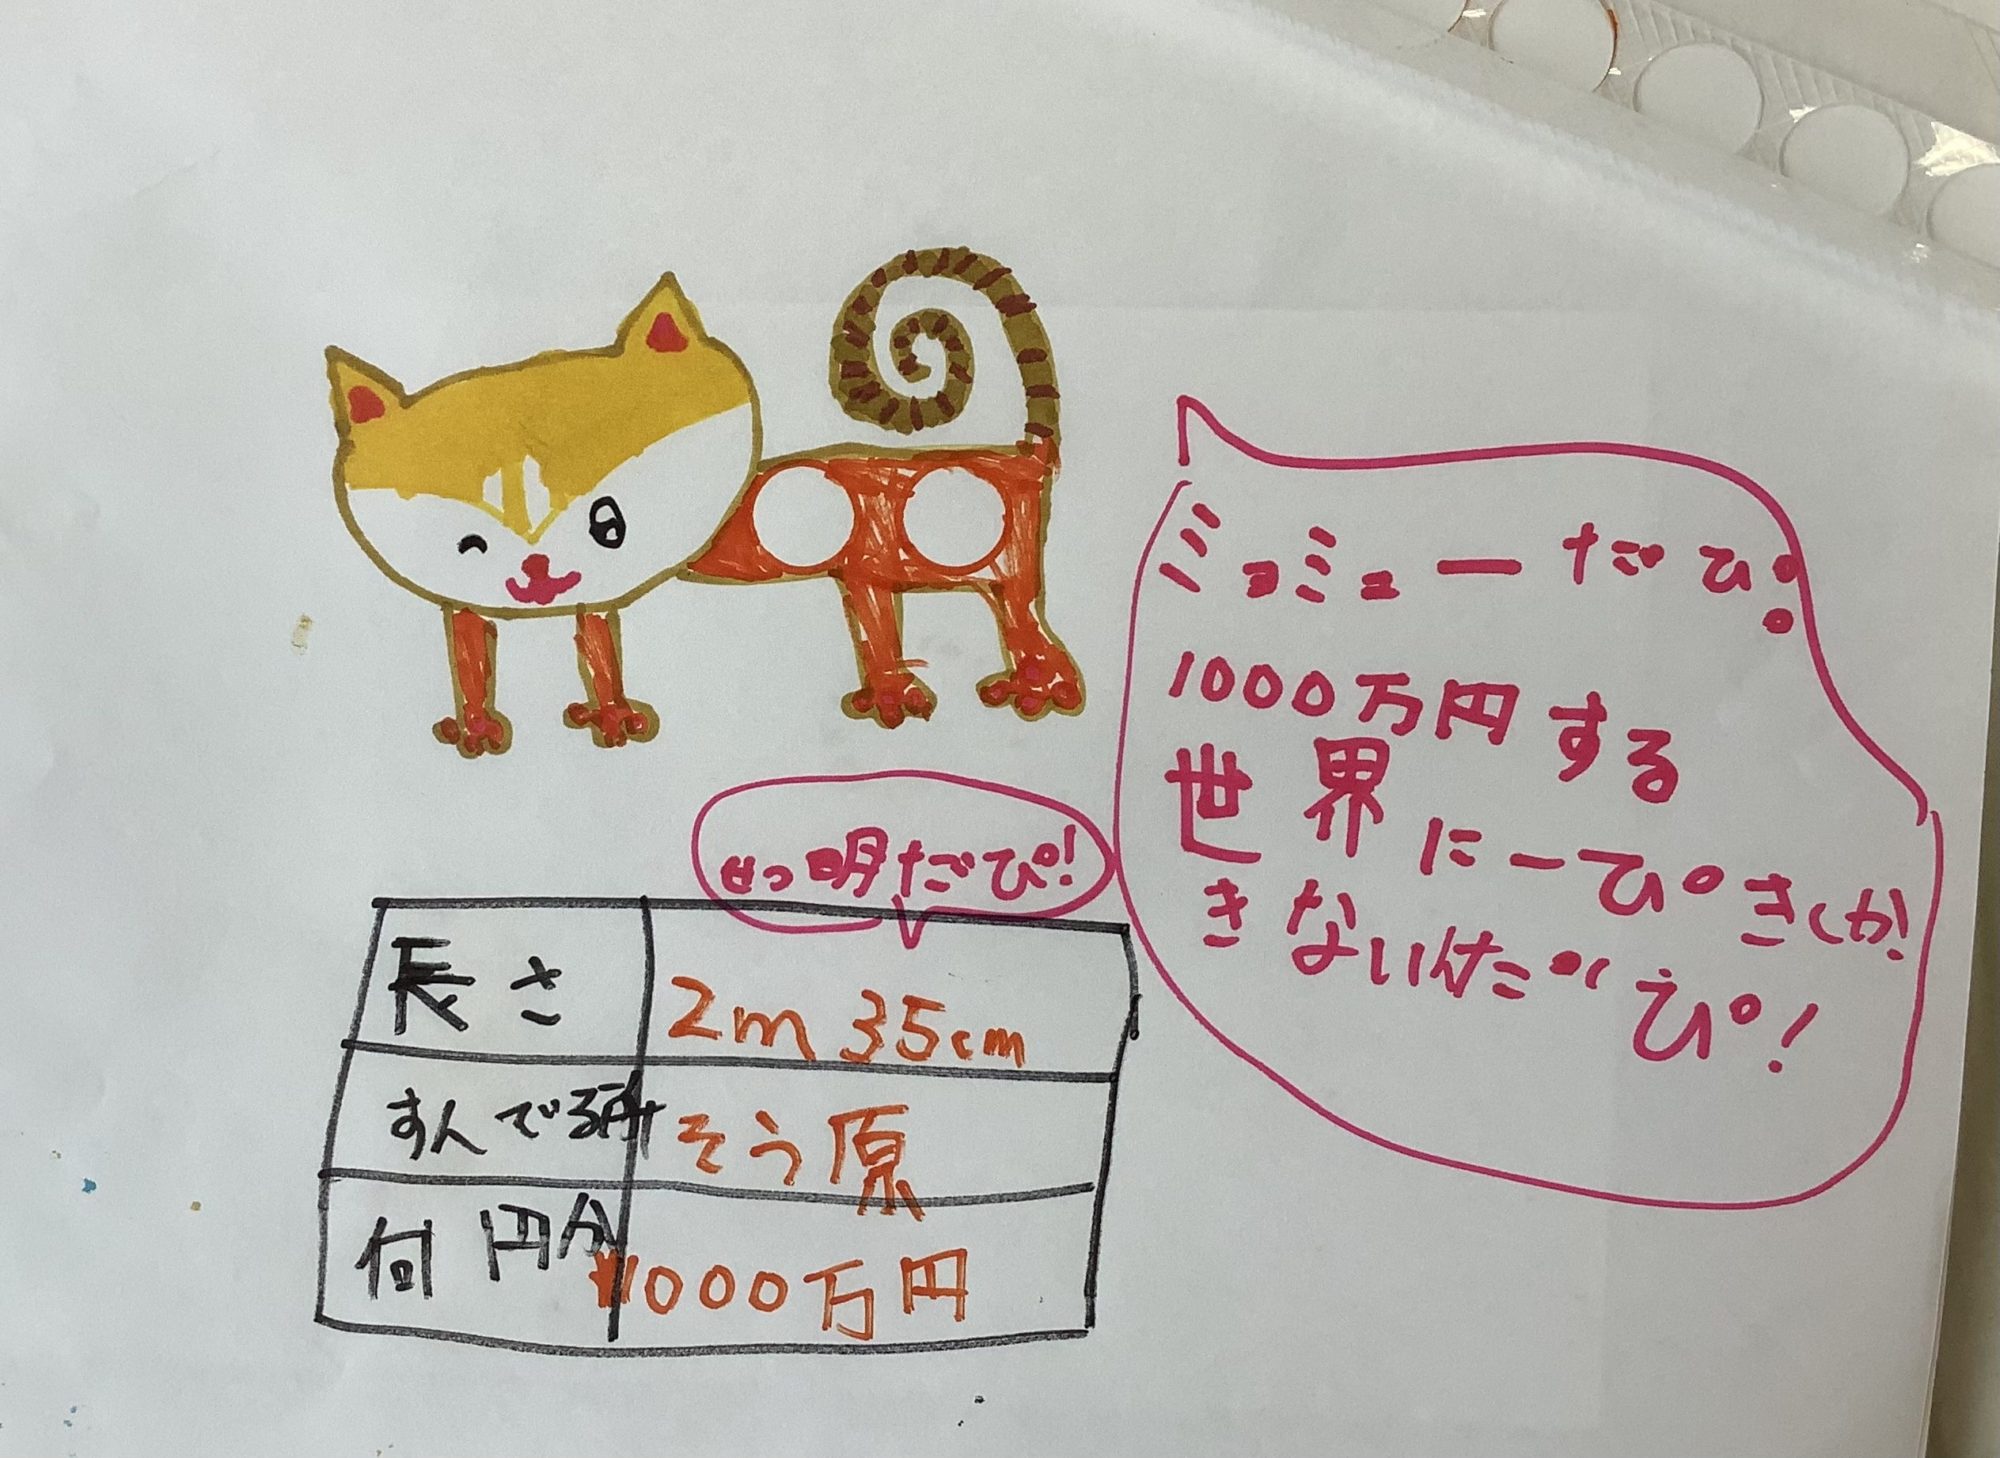 ミョミューだぴ。
1000万円する
世界に一ぴきしか
きないんだぴ!
せつ明だぴ!
長さ 2m 35cm
すんでる所 そう原
何円か ¥1000万円